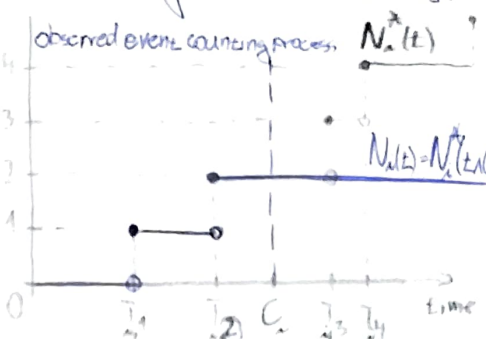 observed event counting process. N_i^*(t)
4
3
N_i(t)=N_i^*(t∧C
2
1
0 T_{i1} T_{i2} C_i T_{i3} T_{i4} time